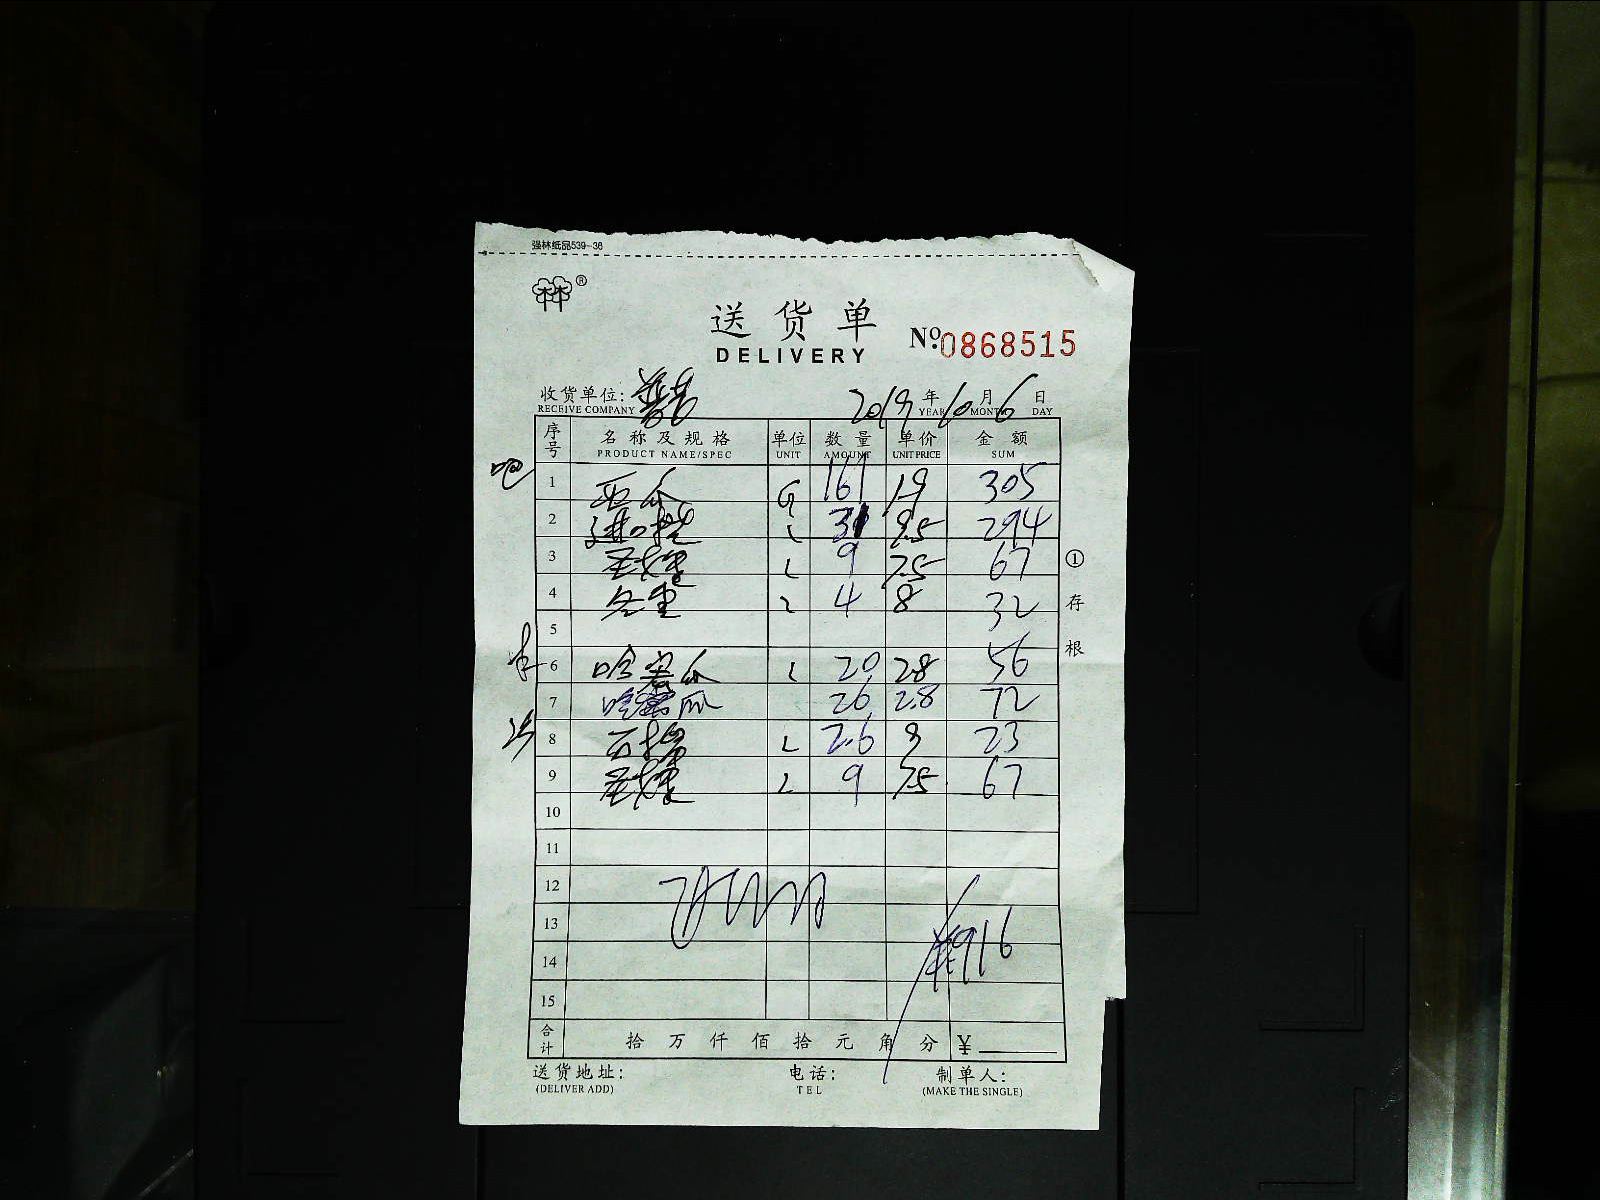 强林纸品539-36
林®
送货单
DELIVERY
No:0868515
收货单位:
RECEIVE COMPANY
2019年10月6日
YEAR MONTH DAY
序号 名称及规格 单位 数量 单价 金额
PRODUCT NAME/SPEC UNIT AMOUNT UNIT PRICE SUM
吧
1 西瓜 161 19 305
2 进口提 9.5 294
3 9 7.5 67
4 冬 4 8 32
5
6 哈密瓜 20 28 56
7 哈密瓜 26 2.8 72
8 石榴 2.6 9 23
9 9 7.5 67
10
11
12
13 916
14
15
合计 拾万仟佰拾元角分 ¥
①存根
送货地址: 电话: 制单人:
(DELIVER ADD) TEL (MAKE THE SINGLE)